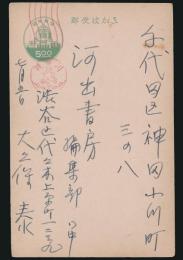 郵便はがき
500
千代田区神田小川町
三の八
河出書房
編集部 御中
渋谷区代々木上原町一二三九
大久保 泰
七月